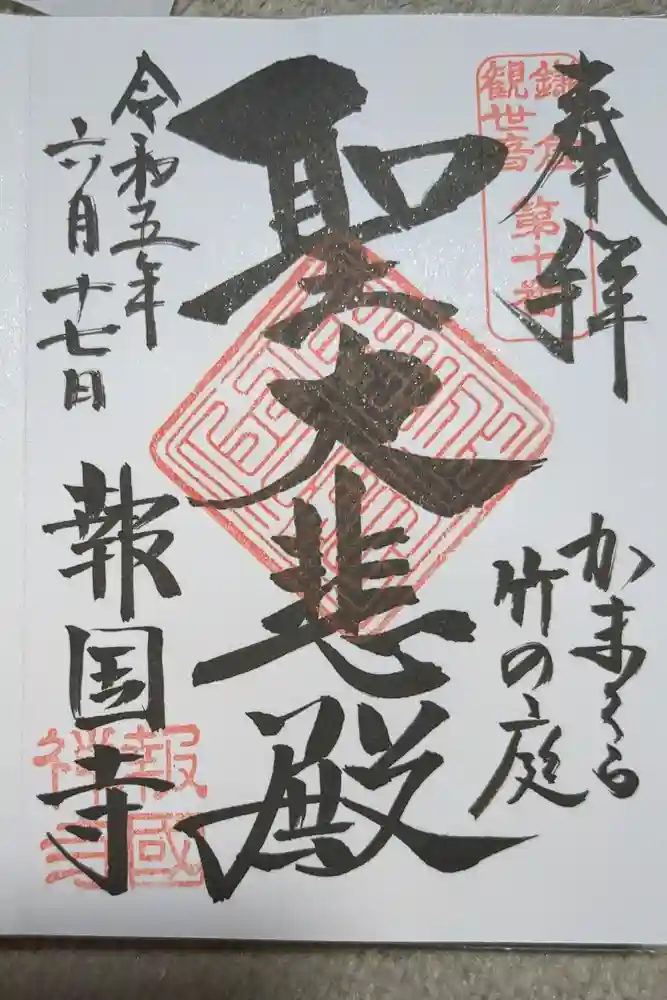 奉拝
鎌倉
観世音 第十番
かまくら
竹の庭
聖大悲殿
令和五年
六月十七日
報国寺
報國
禅寺